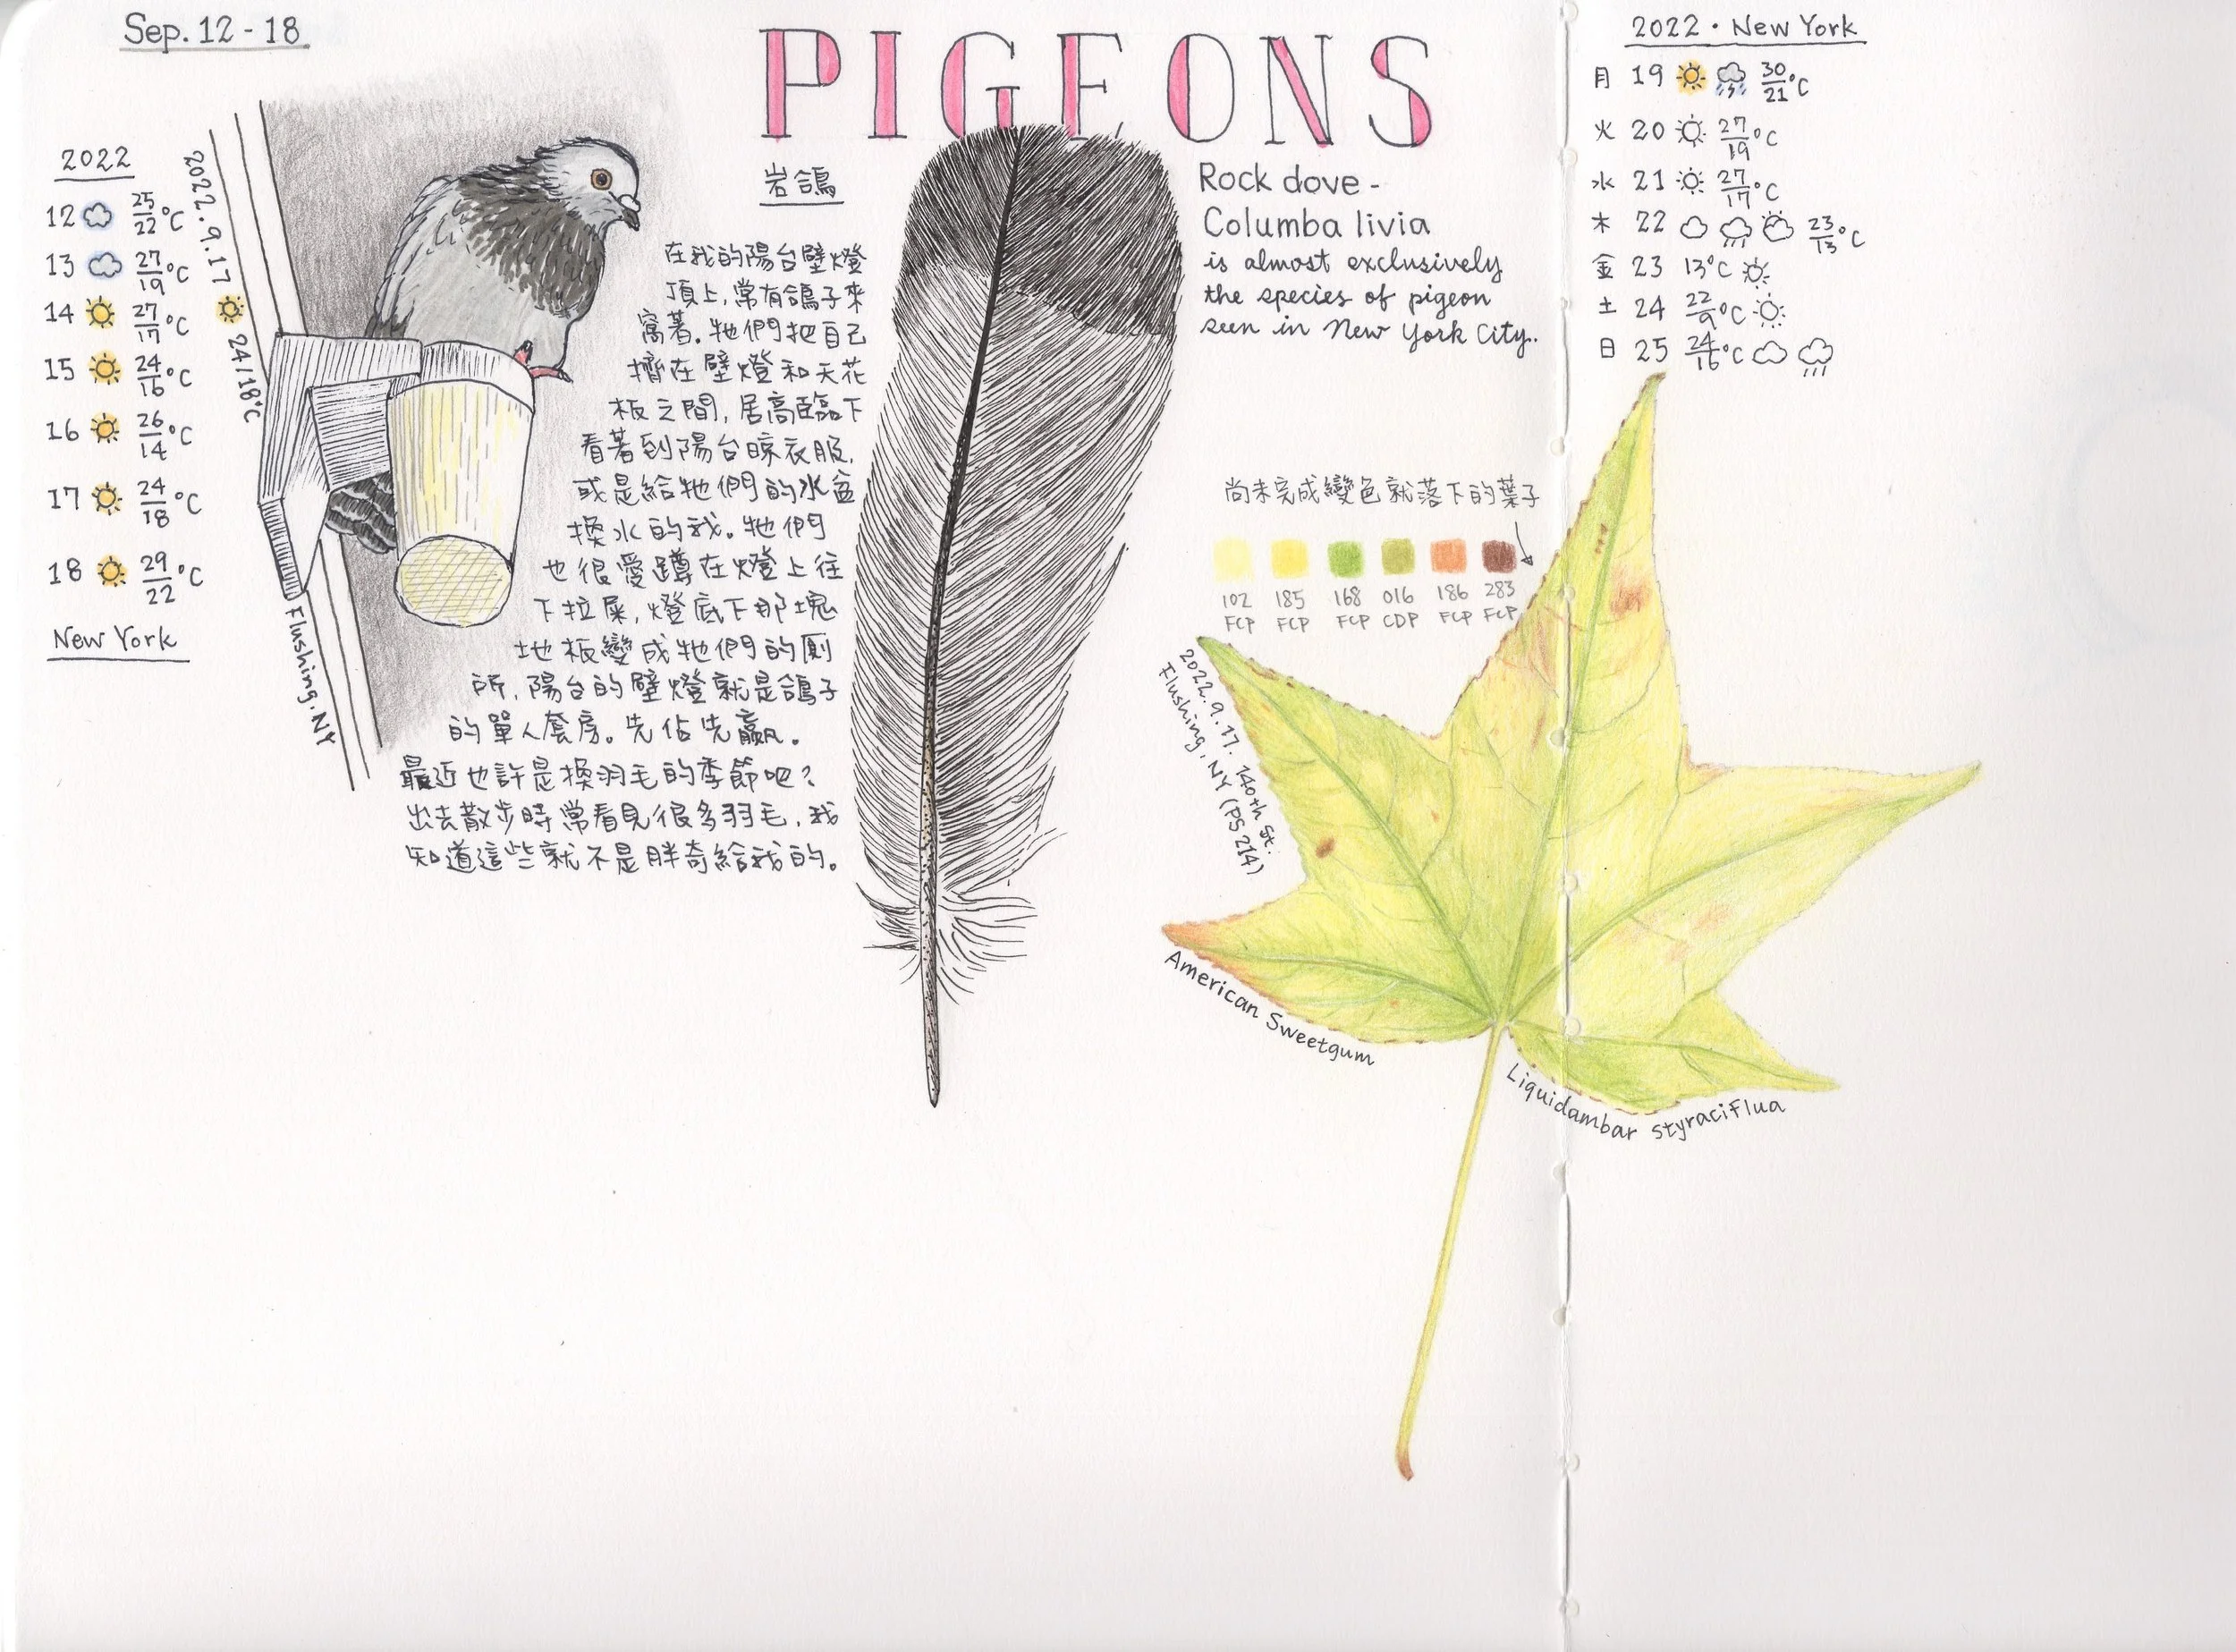 Sep. 12 - 18
PIGEONS
2022 · New York
2022
12 25/22°C
13 27/19°C
14 27/17°C
15 24/16°C
16 26/14°C
17 24/18°C
18 29/22°C
New York
2022.9.17 24/18°C
Flushing, NY
岩鴿
在我的陽台壁燈
頂上，常有鴿子來
窩著。牠們把自己
擠在壁燈和天花
板之間，居高臨下
看著到陽台晾衣服，
或是給牠們的水盆
換水的我。牠們
也很愛蹲在燈上往
下拉屎，燈底下那塊
地板變成牠們的廁
所，陽台的壁燈就是鴿子
的單人套房。先佔先贏。
最近也許是換羽毛的季節吧？
出去散步時常看見很多羽毛，我
知道這些就不是胖奇給我的。
Rock dove -
Columba livia
is almost exclusively
the species of pigeon
seen in New York City.
月 19 30/21°C
火 20 27/19°C
水 21 27/17°C
木 22 23/13°C
金 23 13°C
土 24 22/9°C
日 25 24/16°C
尚未完成變色就落下的葉子
102 185 168 016 186 283
FCP FCP FCP CDP FCP FCP
2022.9.17. 140th St.
Flushing, NY (PS214)
American Sweetgum
Liquidambar styraciflua